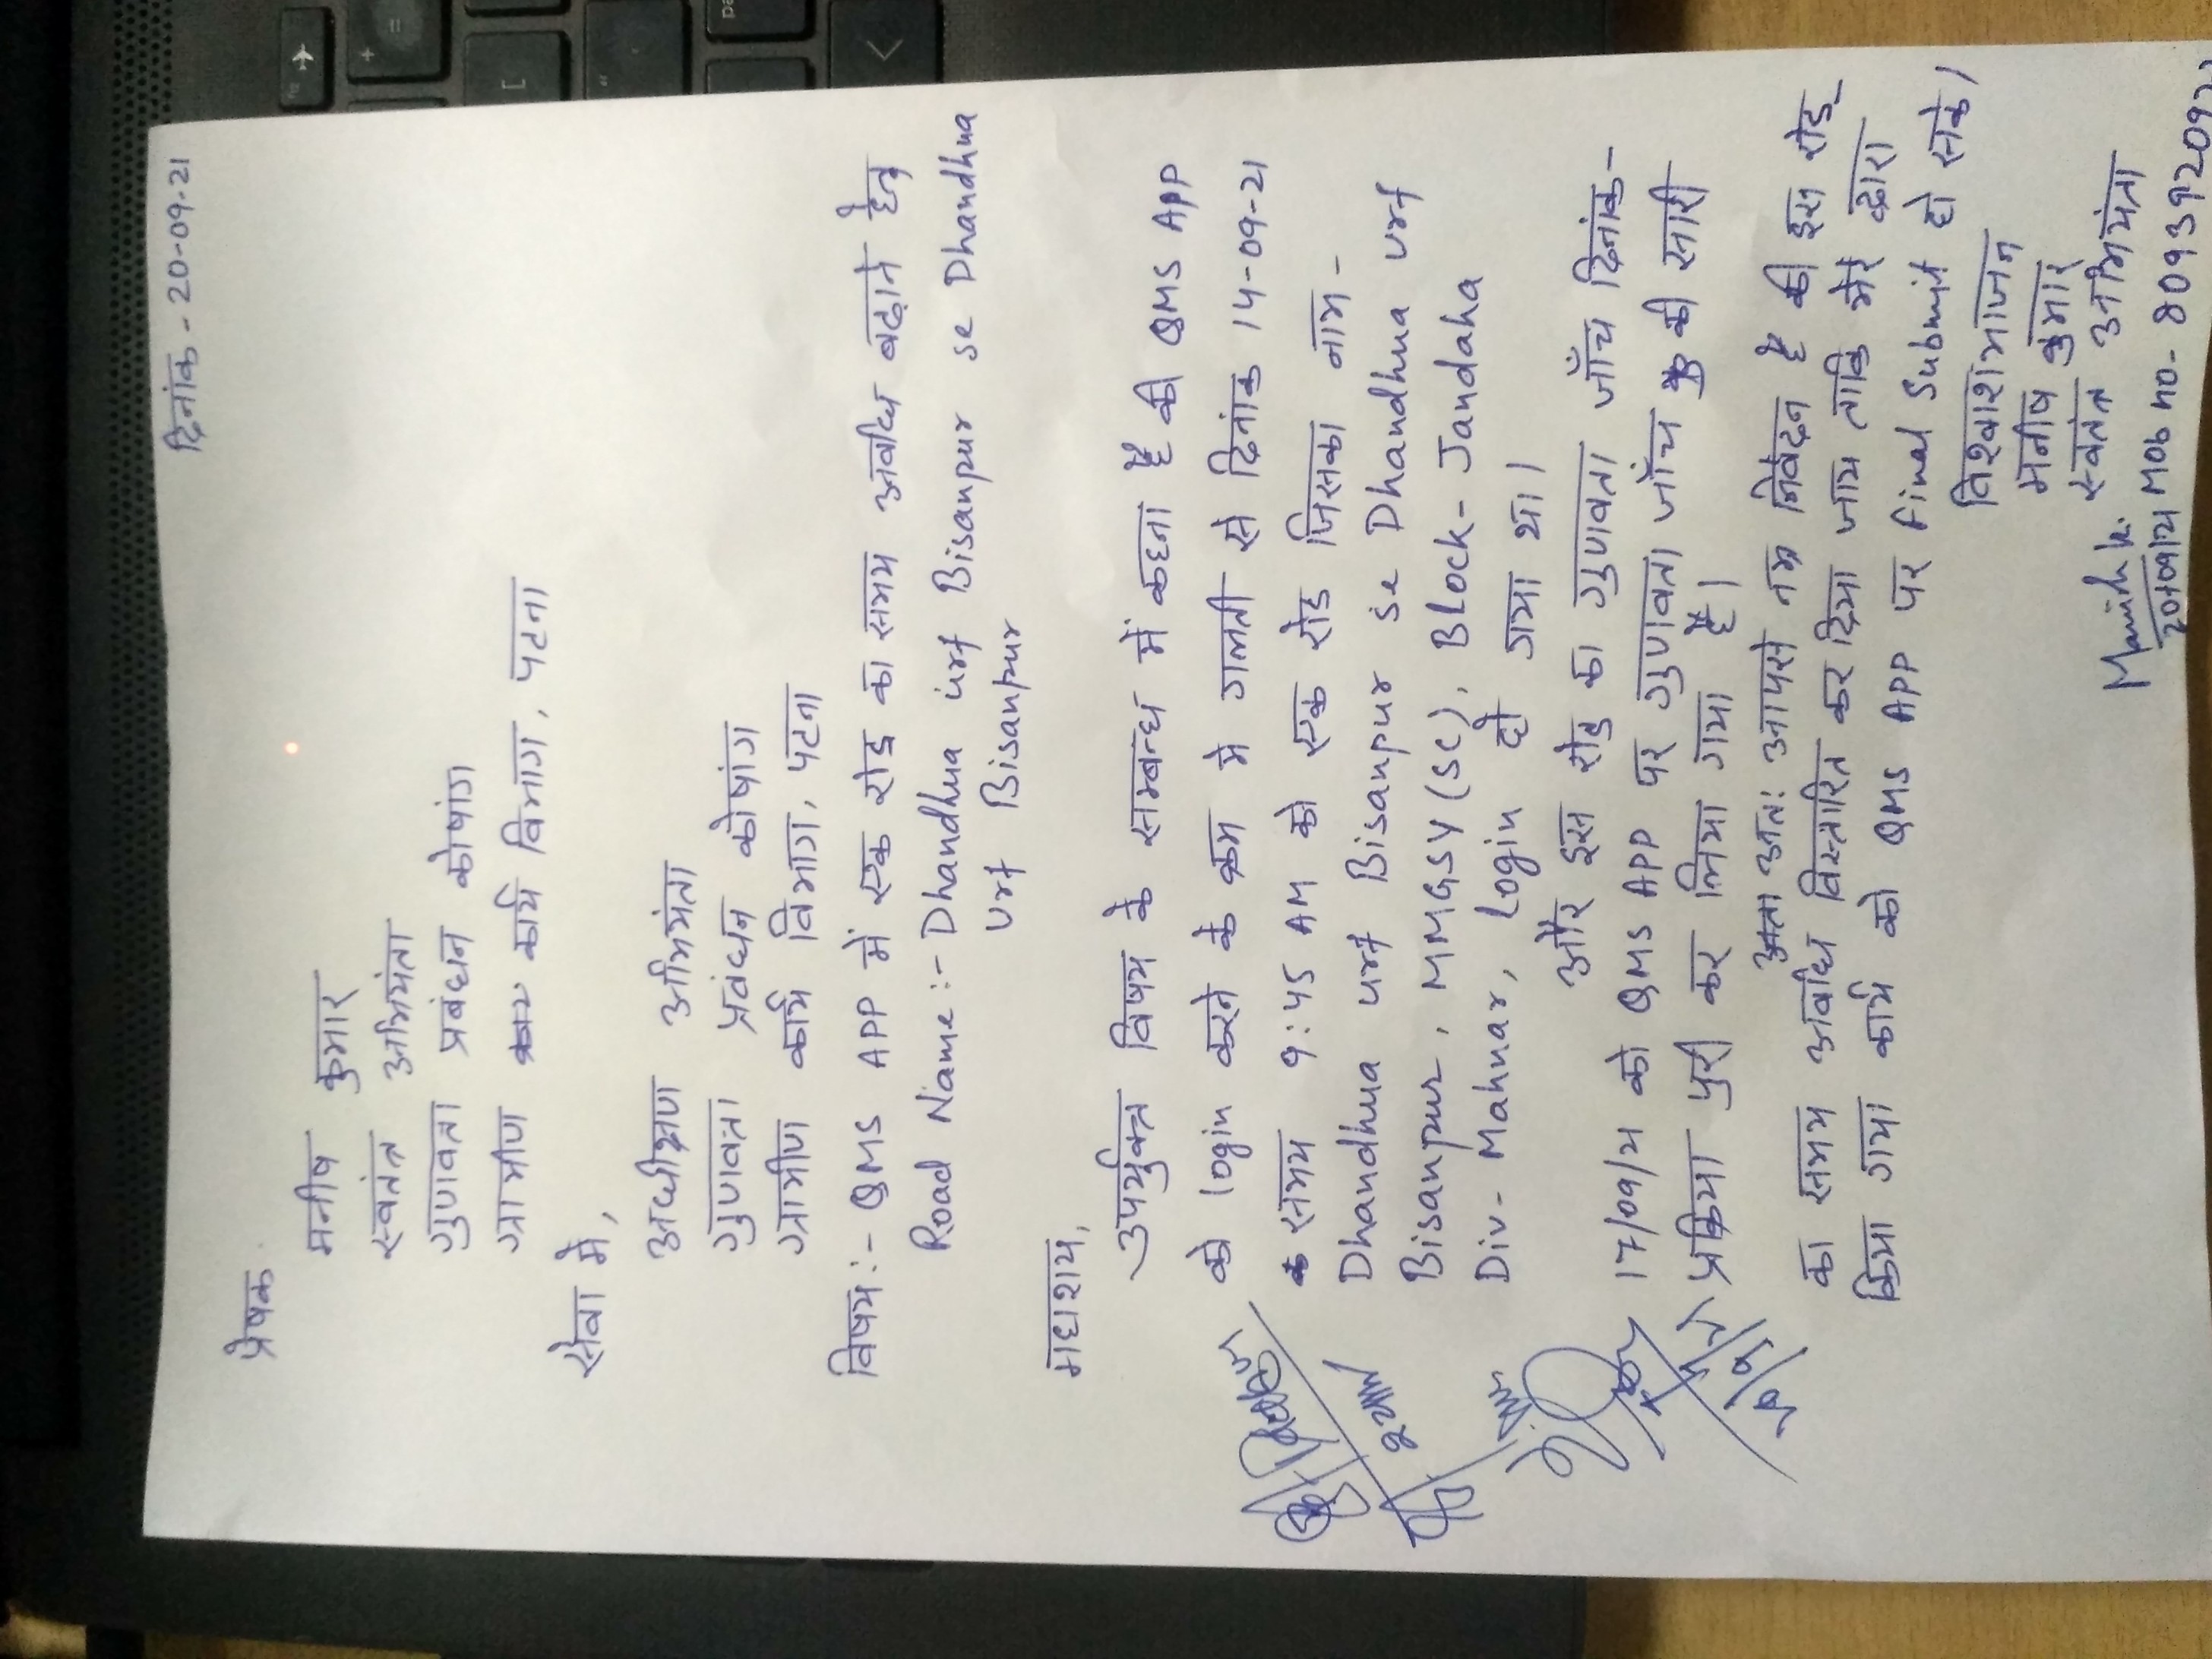 दिनांक - 20-09-21
प्रेषक
मनीष कुमार
स्वतंत्र अभियंता
गुणवत्ता प्रबंधन कोषांग
ग्रामीण कार्य विभाग, पटना
सेवा में,
अधीक्षण अभियंता
गुणवत्ता प्रबंधन कोषांग
ग्रामीण कार्य विभाग, पटना
विषय:- QMS APP में एक रोड का समय अवधि बढ़ाने हेतु
Road Name:- Dhandhua urf Bisanpur se Dhandhua
urf Bisanpur
महाशय,
उपर्युक्त विषय के सम्बन्ध में कहना है की QMS APP
को login करने के क्रम मे गलती से दिनांक 14-09-21
के समय 9:45 AM को एक रोड जिसका नाम -
Dhandhua urf Bisanpur se Dhandhua urf
Bisanpur, MMGSY(SC), Block- Jandaha
Div- Mahnar, login हो गया था।
और इस रोड का गुणवत्ता जाँच दिनांक-
17/09/21 को QMS APP पर गुणवत्ता जाँच की सारी
प्रक्रिया पुरी कर लिया गया है।
अतः आपसे नम्र निवेदन है की इस रोड
का समय अवधि विस्तारित कर दिया जाय ताकि मेरे द्वारा
किया गया कार्य को QMS APP पर final submit हो सके।
विश्वाशभाजन
मनीष कुमार
स्वतंत्र अभियंता
Manish k.
20/09/21 Mob no- 809392092